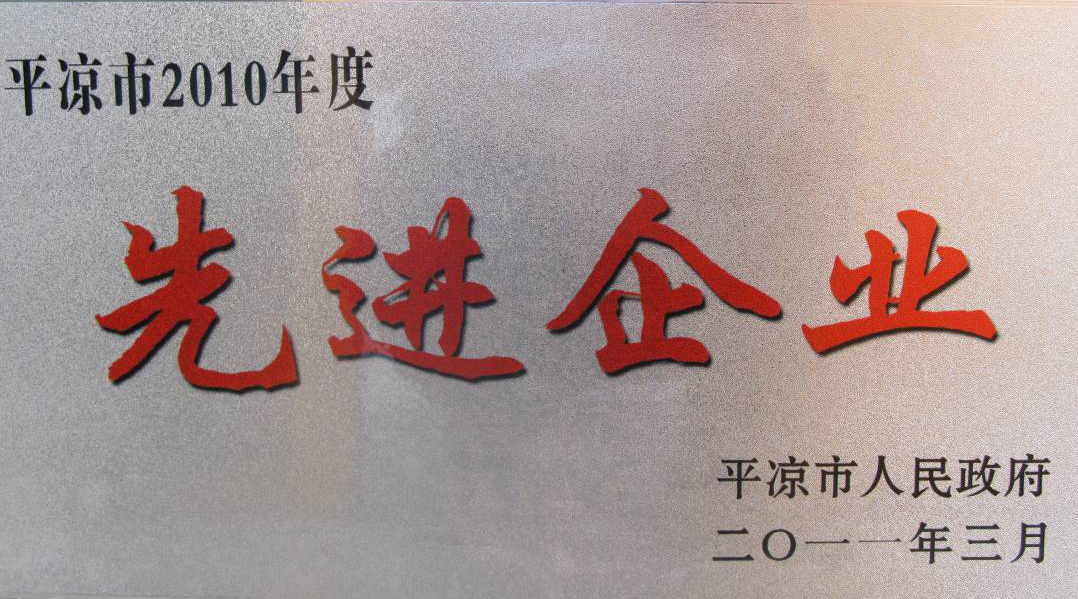 平凉市2010年度
先进企业
平凉市人民政府
二〇一一年三月